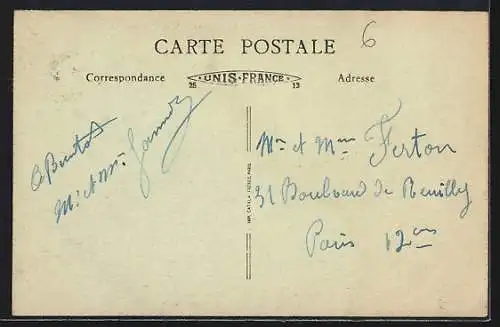 CARTE POSTALE
6
Correspondance
UNIS-FRANCE
25 13
Adresse
A Bientot
Mr et Mme
IMP. CATALA FRÈRES, PARIS
Mr et Mme Ferton
31 Boulevard de Reuilly
Paris 12em